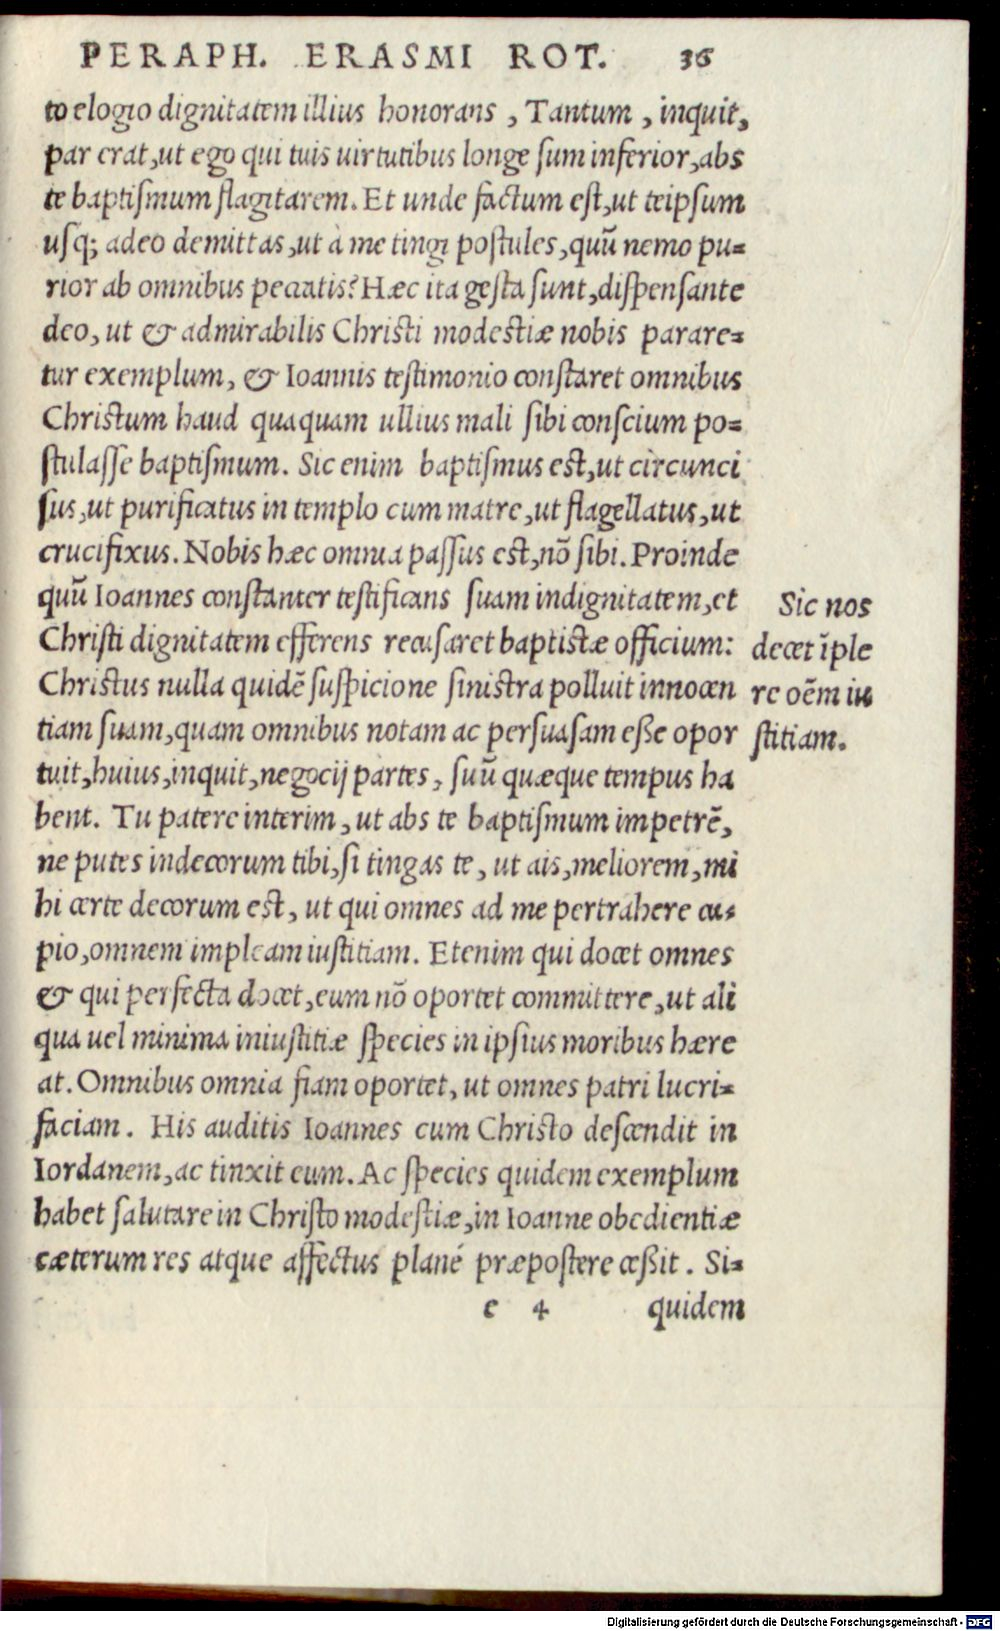 PERAPH. ERASMI ROT. 36
to elogio dignitatem illius honorans, Tantum, inquit,
par erat, ut ego qui tuis uirtutibus longe ſum inferior, abs
te baptiſmum flagitarem. Et unde factum eſt, ut teipſum
uſq; adeo demittas, ut à me tingi poſtules, quū nemo pu=
rior ab omnibus peccatis? Hæc ita geſta ſunt, diſpenſante
deo, ut & admirabilis Chriſti modeſtiæ nobis parare=
tur exemplum, & Ioannis teſtimonio conſtaret omnibus
Chriſtum haud quaquam ullius mali ſibi conſcium po=
ſtulaſſe baptiſmum. Sic enim baptiſmus eſt, ut circunci
ſus, ut purificatus in templo cum matre, ut flagellatus, ut
crucifixus. Nobis hæc omnia paſſus eſt, nō ſibi. Proinde
quū Ioannes conſtanter teſtificans ſuam indignitatem, et
Chriſti dignitatem efferens recuſaret baptiſtæ officium:
Chriſtus nulla quidē ſuſpicione ſiniſtra polluit innocen
tiam ſuam, quam omnibus notam ac perſuaſam eſſe opor
tuit, huius, inquit, negocij partes, ſuū quæque tempus ha
bent. Tu patere interim, ut abs te baptiſmum impetrē,
ne putes indecorum tibi, ſi tingas te, ut ais, meliorem, mi
hi certe decorum eſt, ut qui omnes ad me pertrahere cu=
pio, omnem impleam iuſtitiam. Etenim qui docet omnes
& qui perfecta docet, eum nō oportet committere, ut ali
qua uel minima iniuſtitiæ ſpecies in ipſius moribus hære
at. Omnibus omnia fiam oportet, ut omnes patri lucri=
faciam. His auditis Ioannes cum Chriſto deſcendit in
Iordanem, ac tinxit eum. Ac ſpecies quidem exemplum
habet ſalutare in Chriſto modeſtiæ, in Ioanne obedientiæ
cæterum res atque affectus planè præpoſtere ceſſit. Si=
e 4 quidem
Sic nos
decet īple
re oēm iu
ſtitiam.
Digitalisierung gefördert durch die Deutsche Forschungsgemeinschaft - DFG